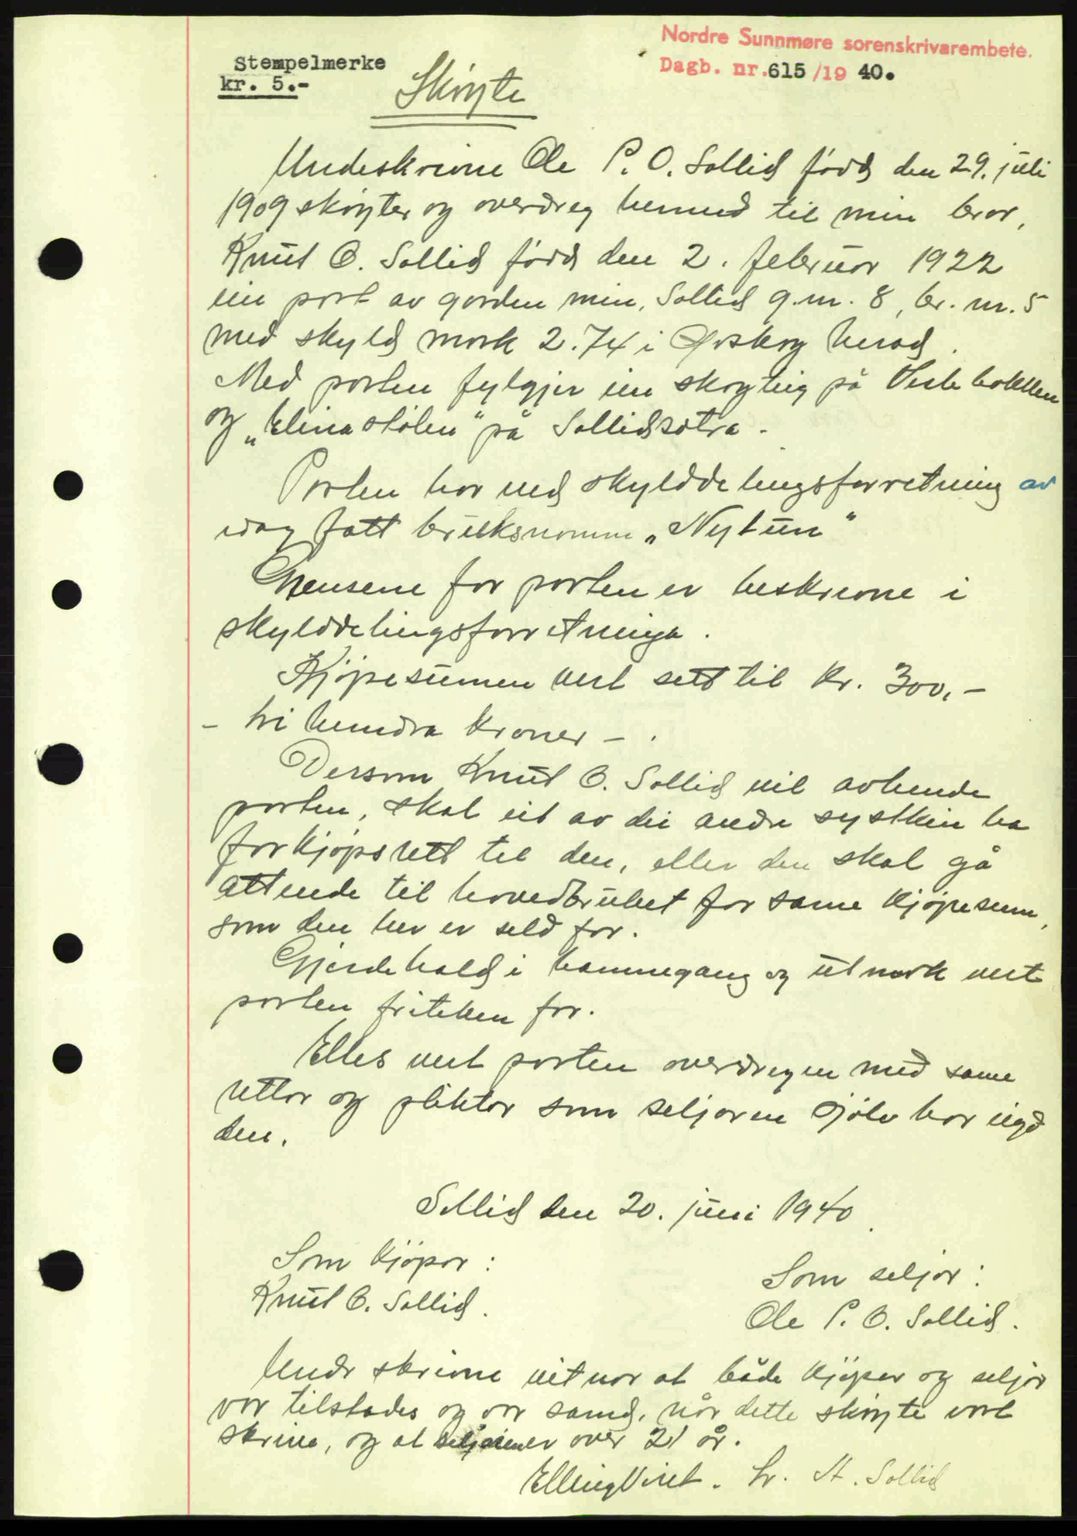 Nordre Sunnmøre sorenskrivarembete.
Dagb. nr. 615/19 40.
Stempelmerke
kr. 5.-
Skøyte
Underskrivne Ole P. O. Sollid född den 29. juli
1909 skøyter og overdreg hermed til min bror,
Knut O. Sollid född den 2. februar 1922
ein part av garden min, Sollid g.nr. 8, br. nr. 5
med skyld mark 2.74 i Ørskog herad.
Med parten fylgjer ein skogteig på
og „Elinastølen" på Sollidsætra.
Parten har ved skylddelingsforretning av
idag fått bruksnamn „Nytun"
Grensene for parten er beskrivne i
skylddelingsforretninga.
Kjøpesumen vert sett til kr. 300,-
- tri hundra kroner - .
Dersom Knut O. Sollid vil avhende
parten, skal eit av dei andre systkin ha
forkjøpsrett til den, eller den skal gå
attende til hovedbruket for same kjøpesum,
som den her er seld for.
Gjerdehald i hamnegang og utmark vert
parten friteken for.
Elles vert parten overdregen med same
rettar og plikter som seljaren sjølv har eigd
den.
Sollid den 20. juni 1940.
Som kjøpar:
Knut O. Sollid.
Som seljar:
Ole P. O. Sollid.
Underskrivne vitnar at både kjøpar og seljar
var tilstades og var samd, når dette skøyte vart
skrive, og at seljaren er over 21 år.
Elling Viset. Sollid